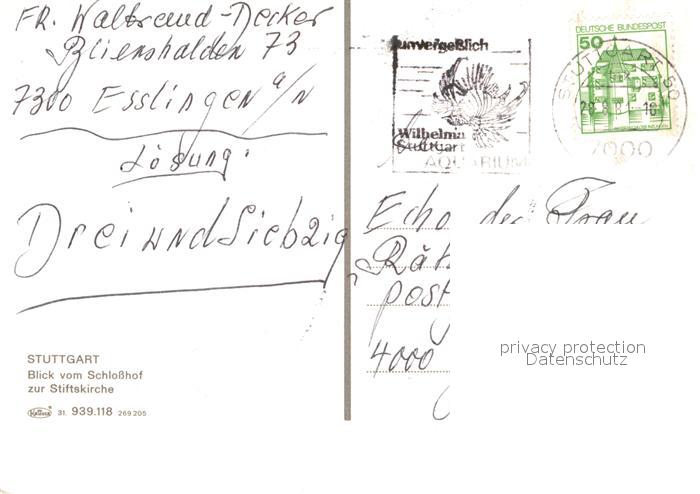 FR. Waltraud-Decker
Plienshalden 73
7300 Esslingen a/N
Lösung:
Dreiundsiebzig
STUTTGART
Blick vom Schloßhof
zur Stiftskirche
31. 939.118 269 205
unvergeßlich
Wilhelma
Stuttgart
AQUARIUM
DEUTSCHE BUNDESPOST
50
STUTTGART 50
7000
Echo der Frau
Rät
post
4000
privacy protection
Datenschutz